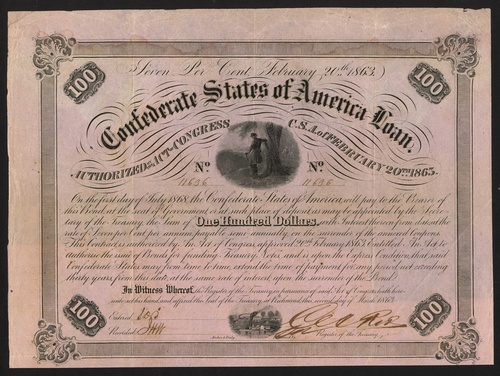 100
100
(Seven Per Cent, February 20th 1863.)
Confederate States of America Loan.
AUTHORIZED BY ACT OF CONGRESS C.S.A. of FEBRUARY 20TH 1863.
No No
11636 11636
On the first day of July 1868, the Confederate States of America, will pay to the Bearer of
this Bond, at the seat of Government, or at such place of deposit as may be appointed by the Secre-
tary of the Treasury, the Sum of One Hundred Dollars, with Interest thereon from date at the
rate of Seven per Cent per annum, payable semi-annually, on the surrender of the annexed Coupons.
This Contract is authorized by An Act of Congress, approved 20th February 1863. Entitled An Act to
authorize the issue of Bonds for funding Treasury Notes, and is upon the Express Condition, that said
Confederate States may from time to time, extend the time of payment for any period not exceeding
thirty years from this date at the same rate of interest upon the of the Bond.
In Witness Whereof, the Register of the Treasury, in pursuance of said Act of Congress, hath here-
unto set his hand and affixed the Seal of the Treasury, at Richmond this second day of March 1863.
Entered
Recorded
Register of the Treasury.
100
100